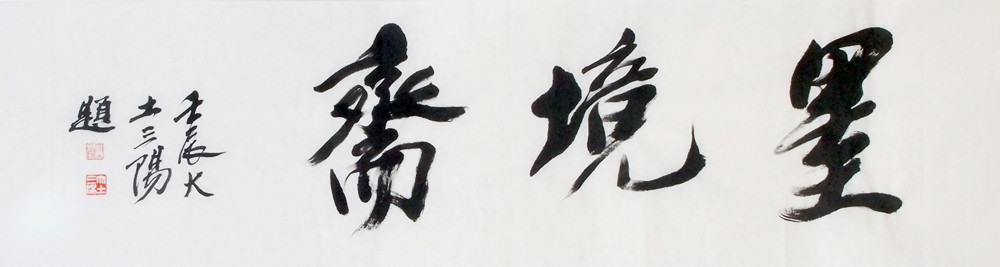 墨境齋
壬辰大
土三陽
題